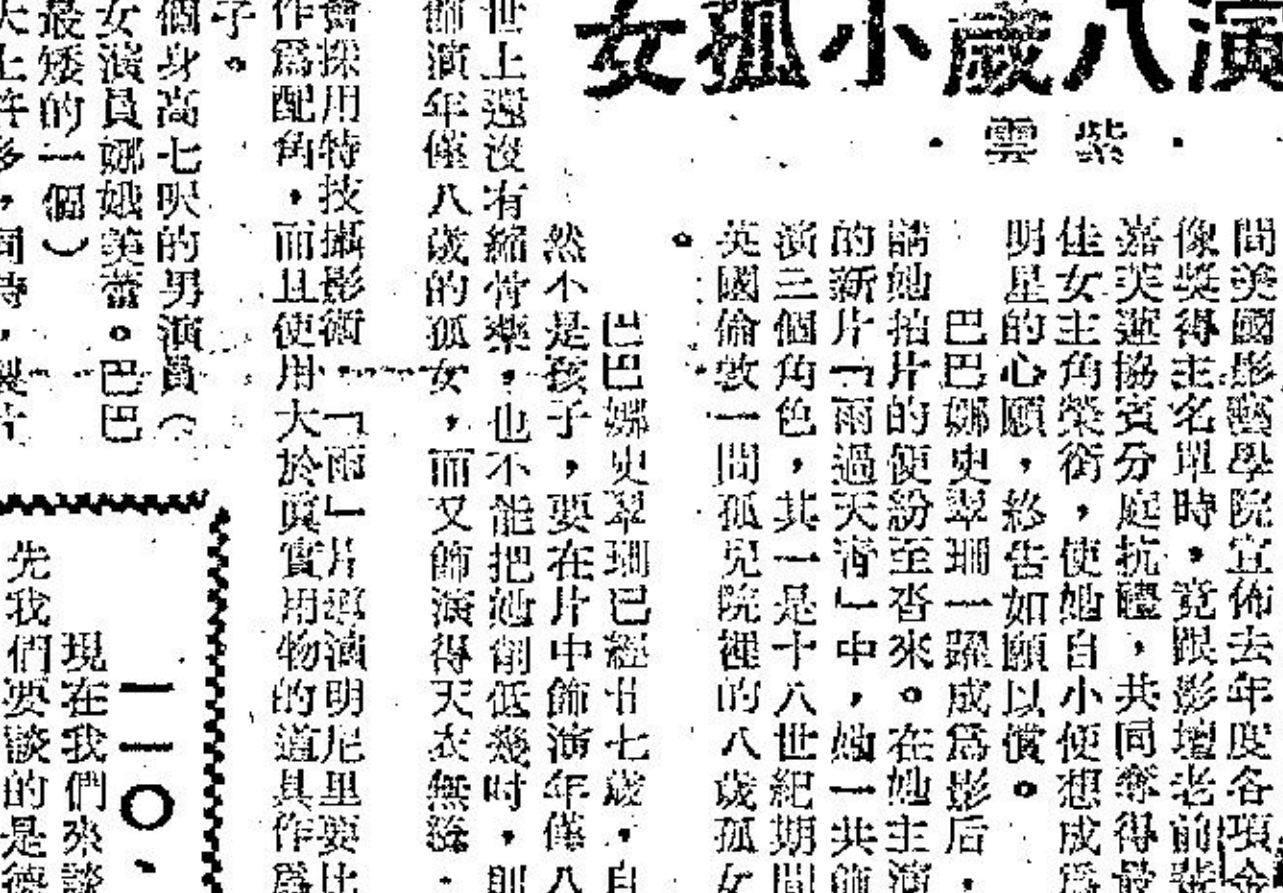 演八歲小孤女
·紫雲·
間美國影藝學院宣佈去年度各項金
像獎得主名單時，竟跟影壇老前輩
嘉芙蓮協賓分庭抗禮，共同奪得最
佳女主角榮銜，使她自小便想成為
明星的心願，終告如願以償。
巴巴娜史翠珊一躍成為影后，
請她拍片的便紛至沓來。在她主演
的新片「雨過天青」中，她一共飾
演三個角色，其一是十八世紀期間
英國倫敦一間孤兒院裡的八歲孤女
。
巴巴娜史翠珊已經廿七歲，自
然不是孩子，要在片中飾演年僅八
世上還沒有縮骨藥，也不能把她削低幾吋，則
飾演年僅八歲的孤女，而又飾演得天衣無縫，
會採用特技攝影術「雨」片導演明尼里要比
作為配角，而且使用大於真實用物的道具作為
子。
個身高七呎的男演員（
女演員娜娥英蕾。巴巴
最矮的一個）
大上許多，同時，製片
一一〇、
現在我們來談
先我們要談的是德